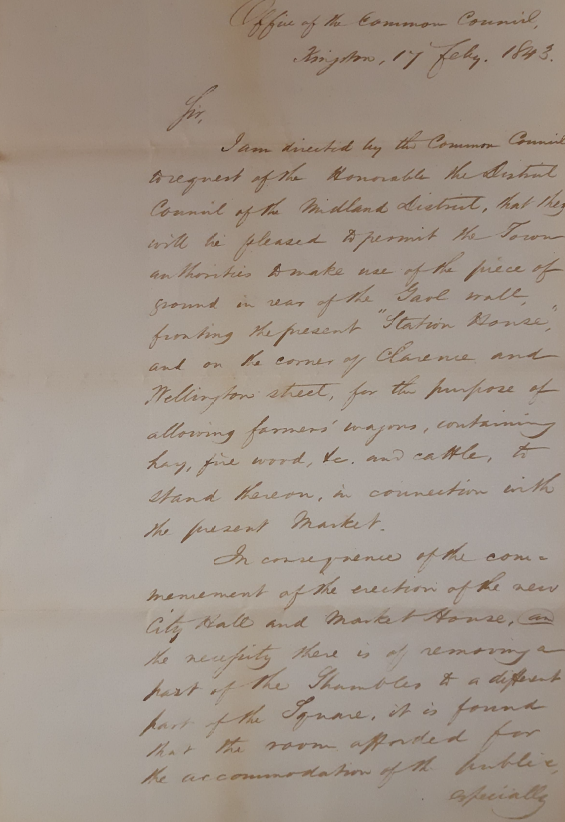 Office of the Common Council,
Kingston, 17 Feby. 1843.
Sir,
I am directed by the Common Council
to request of the Honorable the District
Council of the Midland District, that they
will be pleased to permit the Town
authorities to make use of the piece of
ground in rear of the Gaol wall,
fronting the present "Station House",
and on the corner of Clarence and
Wellington street, for the purpose of
allowing farmers' wagons, containing
hay, fire wood, &c. and cattle, to
stand thereon, in connection with
the present Market.
In consequence of the com=
mencement of the erection of the new
City Hall and Market House, an
the necessity there is of removing a
part of the Shambles to a different
part of the Square, it is found
that the room afforded for
the accommodation of the public,
especially